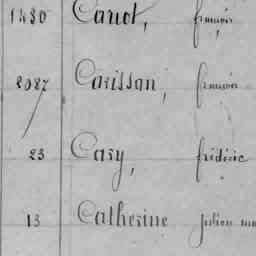 1480 Canot, françois
2087 Carissan, françois
23 Cary, frédéric
13 Catherine Julien